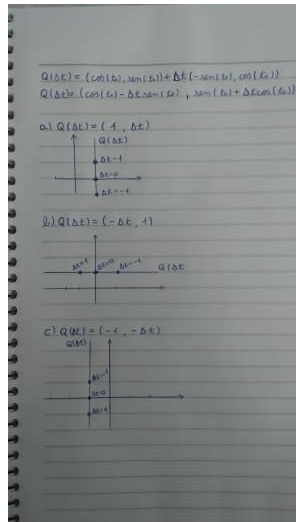 Q(Δt) = (cos(t₀), sen(t₀)) + Δt(-sen(t₀), cos(t₀))
Q(Δt) = (cos(t₀) - Δt sen(t₀), sen(t₀) + Δt cos(t₀))
a) Q(Δt) = (1, Δt)
Q(Δt)
Δt=1
Δt=0
Δt=-1
b) Q(Δt) = (-Δt, 1)
Δt=1 Δt=0 Δt=-1 Q(Δt
c) Q(Δt) = (-1, -Δt)
Q(Δt)
Δt=-1
Δt=0
Δt=1